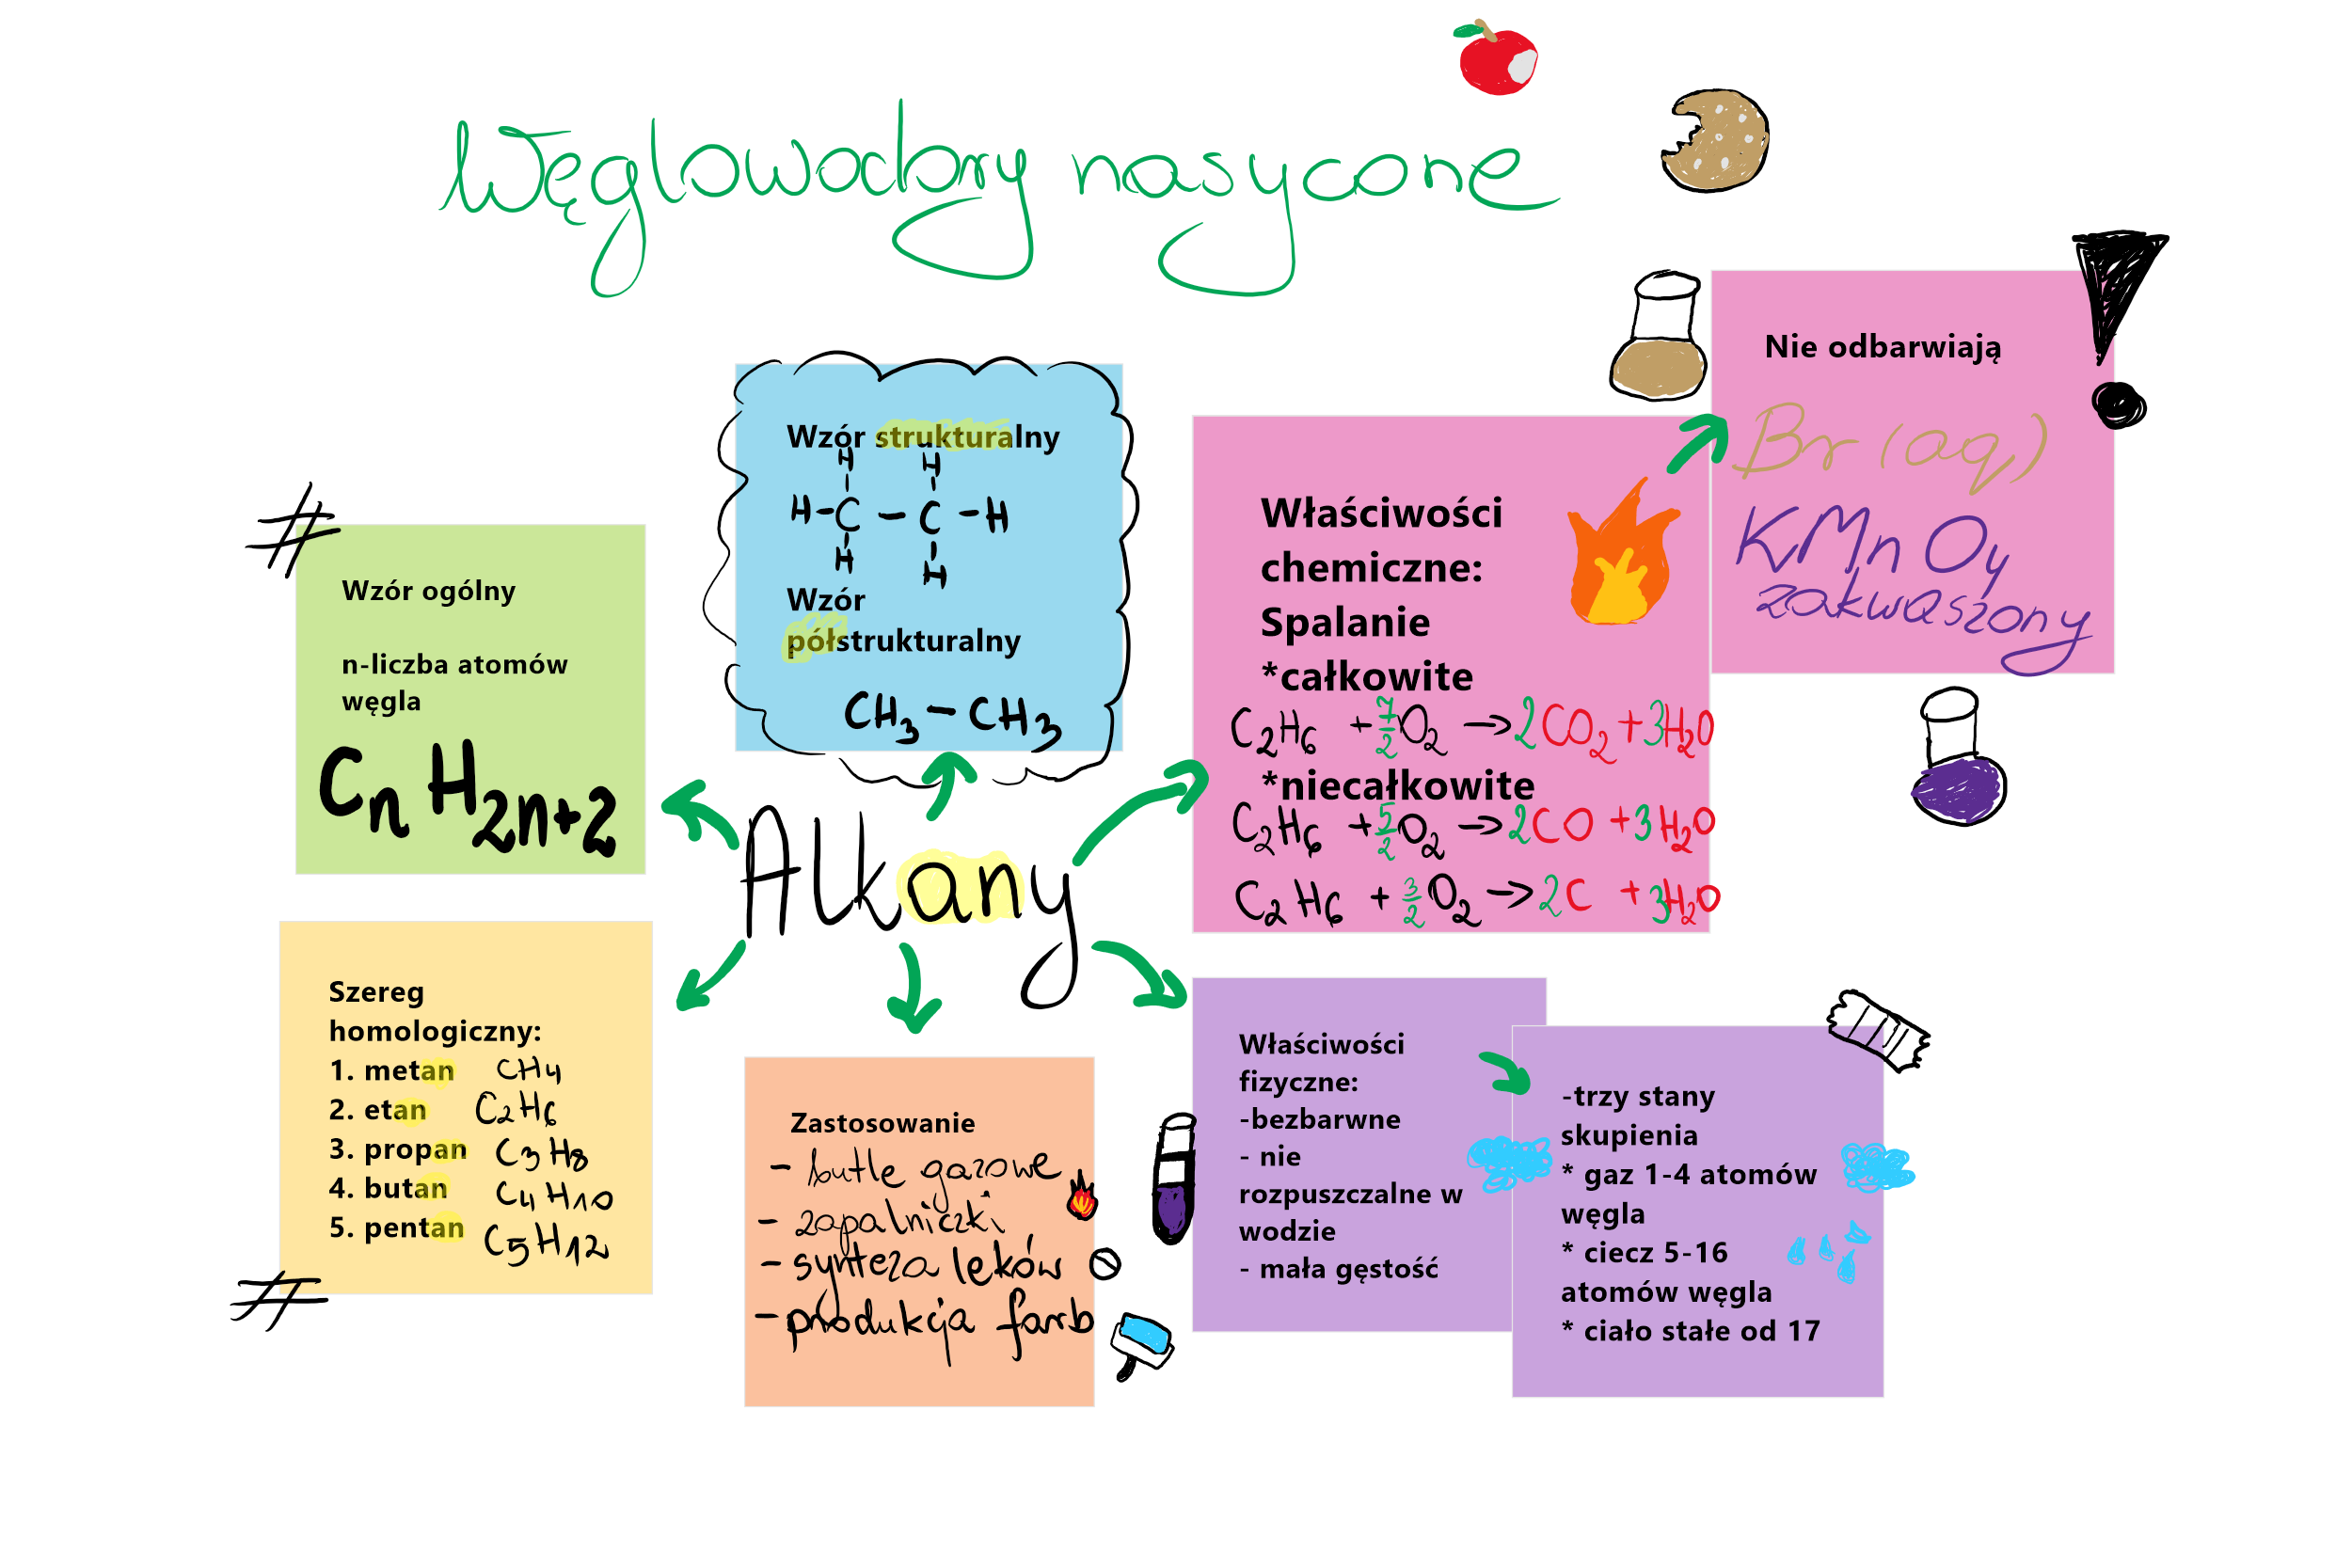 Węglowodory nasycone
#
Wzór ogólny
n-liczba atomów
węgla
CₙH₂ₙ₊₂
Wzór strukturalny
H H
H-C-C-H
H H
Wzór
półstrukturalny
CH₃-CH₃
Alkany
Właściwości
chemiczne:
Spalanie
*całkowite
C₂H₆ + 7/2 O₂ → 2CO₂ + 3H₂O
*niecałkowite
C₂H₆ + 5/2 O₂ → 2CO + 3H₂O
C₂H₆ + 3/2 O₂ → 2C + 3H₂O
Nie odbarwiają
Br (aq)
KMnO₄
zakwaszony
!
Szereg
homologiczny:
1. metan CH₄
2. etan C₂H₆
3. propan C₃H₈
4. butan C₄H₁₀
5. pentan C₅H₁₂
#
Zastosowanie
- butle gazowe
- zapalniczki
- synteza leków
- produkcja farb
Właściwości
fizyczne:
-bezbarwne
- nie
rozpuszczalne w
wodzie
- mała gęstość
-trzy stany
skupienia
* gaz 1-4 atomów
węgla
* ciecz 5-16
atomów węgla
* ciało stałe od 17